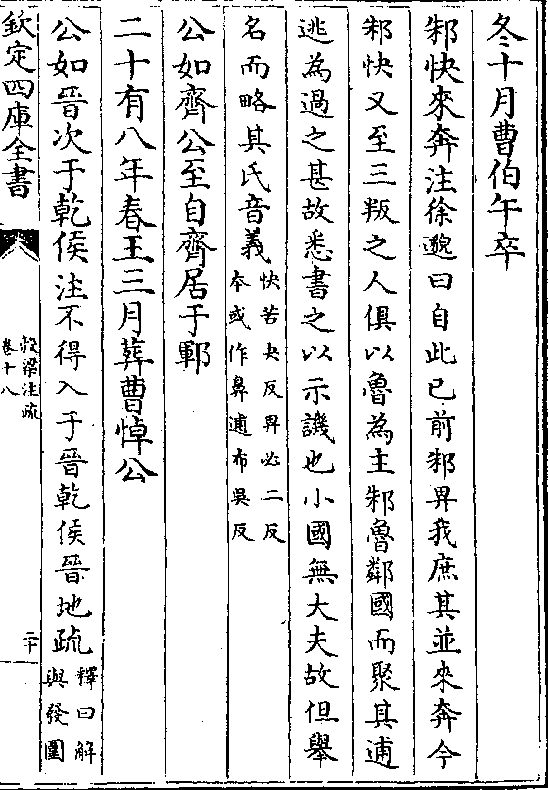 冬十月曹伯午卒
邾快來奔注徐邈曰自此已前邾畀我庶其並來奔今
邾快又至三叛之人俱以魯為主邾魯鄰國而聚其逋
逃為過之甚故悉書之以示譏也小國無大夫故但舉
名而略其氏音義快苦夬反畀必二反
本或作鼻逋布吳反
公如齊公至自齊居于鄆
二十有八年春王三月葬曹悼公
公如晉次于乾侯注不得入于晉乾侯晉地疏釋曰解
與發圍
欽定四庫全書
穀梁注疏
卷十八
二十